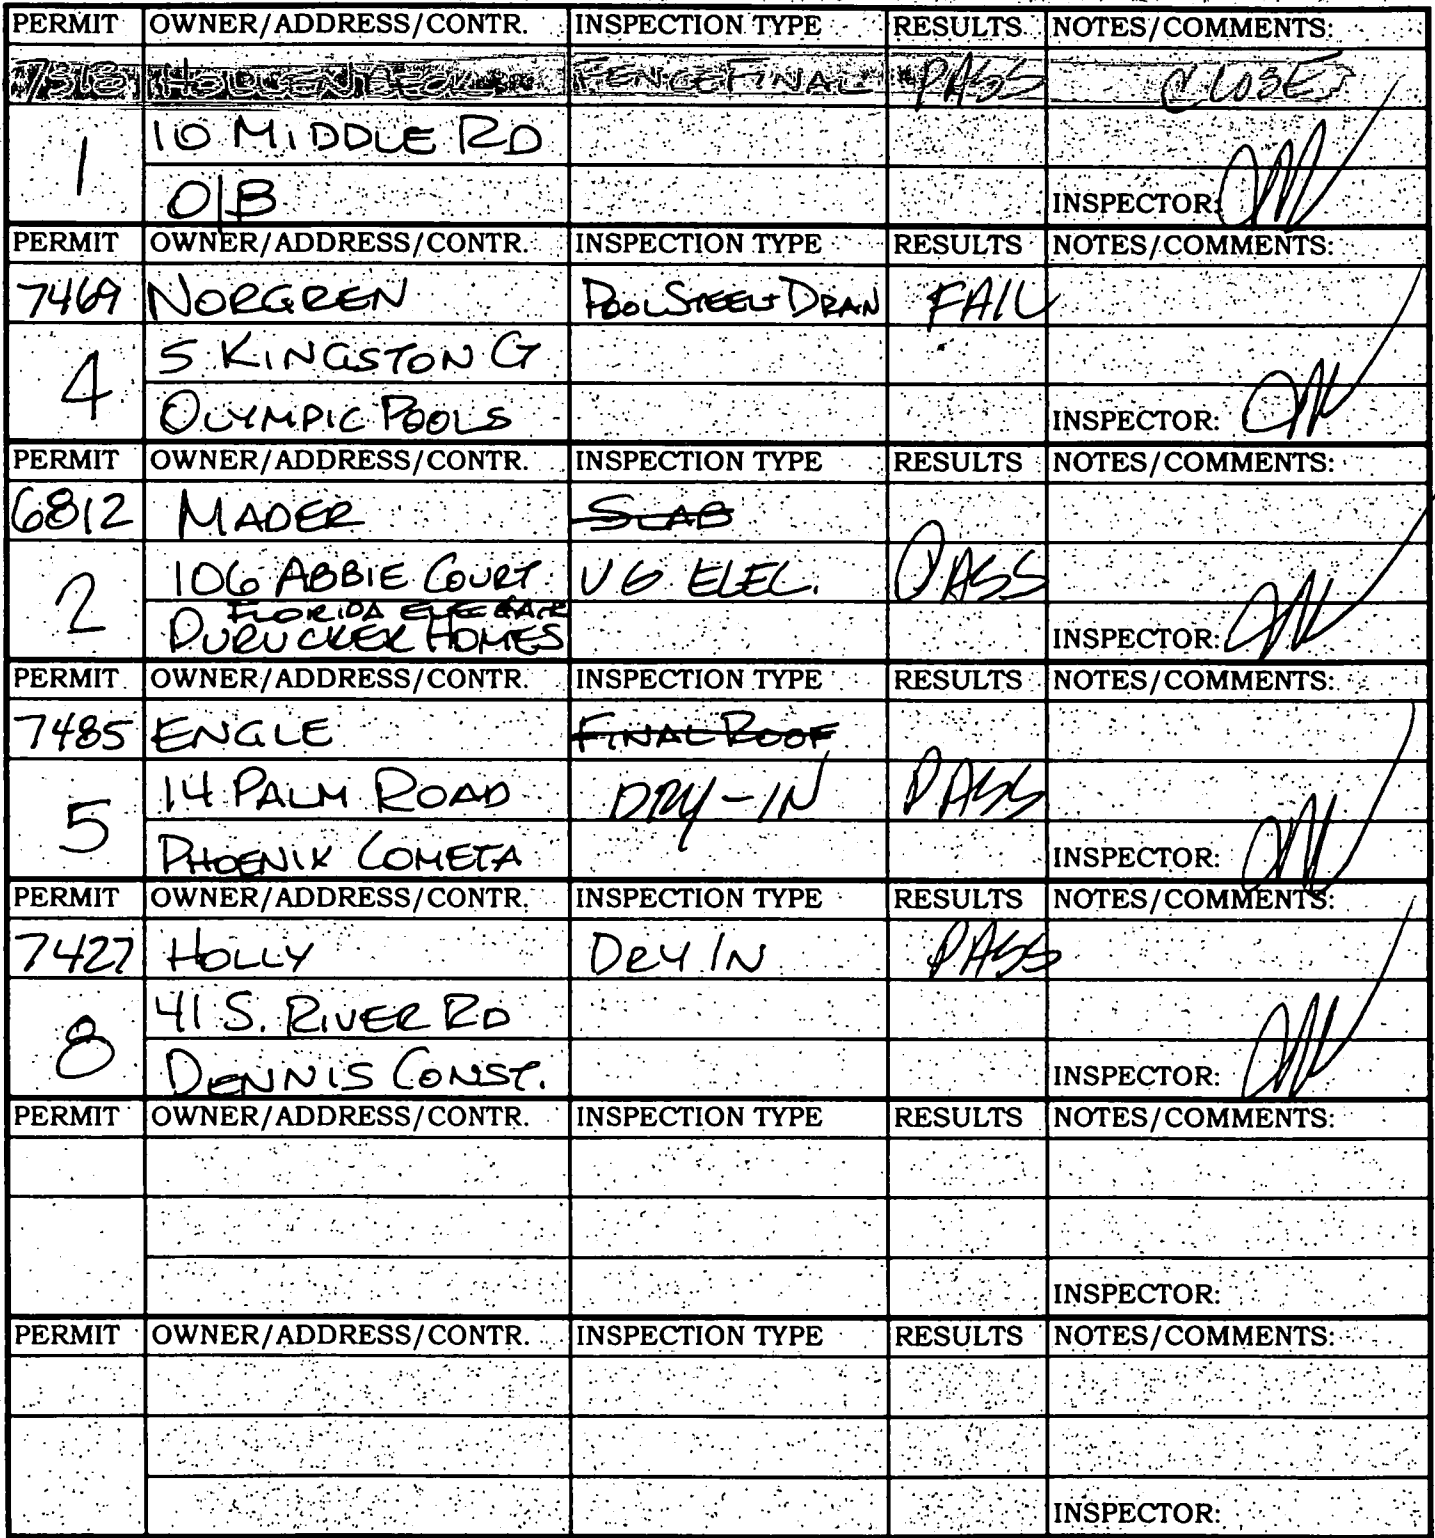 PERMIT OWNER/ADDRESS/CONTR. INSPECTION TYPE RESULTS NOTES/COMMENTS:
7313 HOLLENBECK FENCE FINAL PASS CLOSE
1 10 MIDDLE RD
O/B INSPECTOR:
PERMIT OWNER/ADDRESS/CONTR. INSPECTION TYPE RESULTS NOTES/COMMENTS:
7469 NORGREN POOL STEEL + DRAN FAIL
4 5 KINGSTON CT
OLYMPIC POOLS INSPECTOR:
PERMIT OWNER/ADDRESS/CONTR. INSPECTION TYPE RESULTS NOTES/COMMENTS:
6812 MADER SLAB
2 106 ABBIE COURT UG ELEC. PASS
FLORIDA
DURUCKER HOMES INSPECTOR:
PERMIT OWNER/ADDRESS/CONTR. INSPECTION TYPE RESULTS NOTES/COMMENTS:
7485 ENGLE FINAL ROOF
5 14 PALM ROAD DRY-IN PASS
PHOENIX COMETA INSPECTOR:
PERMIT OWNER/ADDRESS/CONTR. INSPECTION TYPE RESULTS NOTES/COMMENTS:
7427 HOLLY DRY IN PASS
8 41 S. RIVER RD
DENNIS CONST. INSPECTOR:
PERMIT OWNER/ADDRESS/CONTR. INSPECTION TYPE RESULTS NOTES/COMMENTS:
INSPECTOR:
PERMIT OWNER/ADDRESS/CONTR. INSPECTION TYPE RESULTS NOTES/COMMENTS:
INSPECTOR: